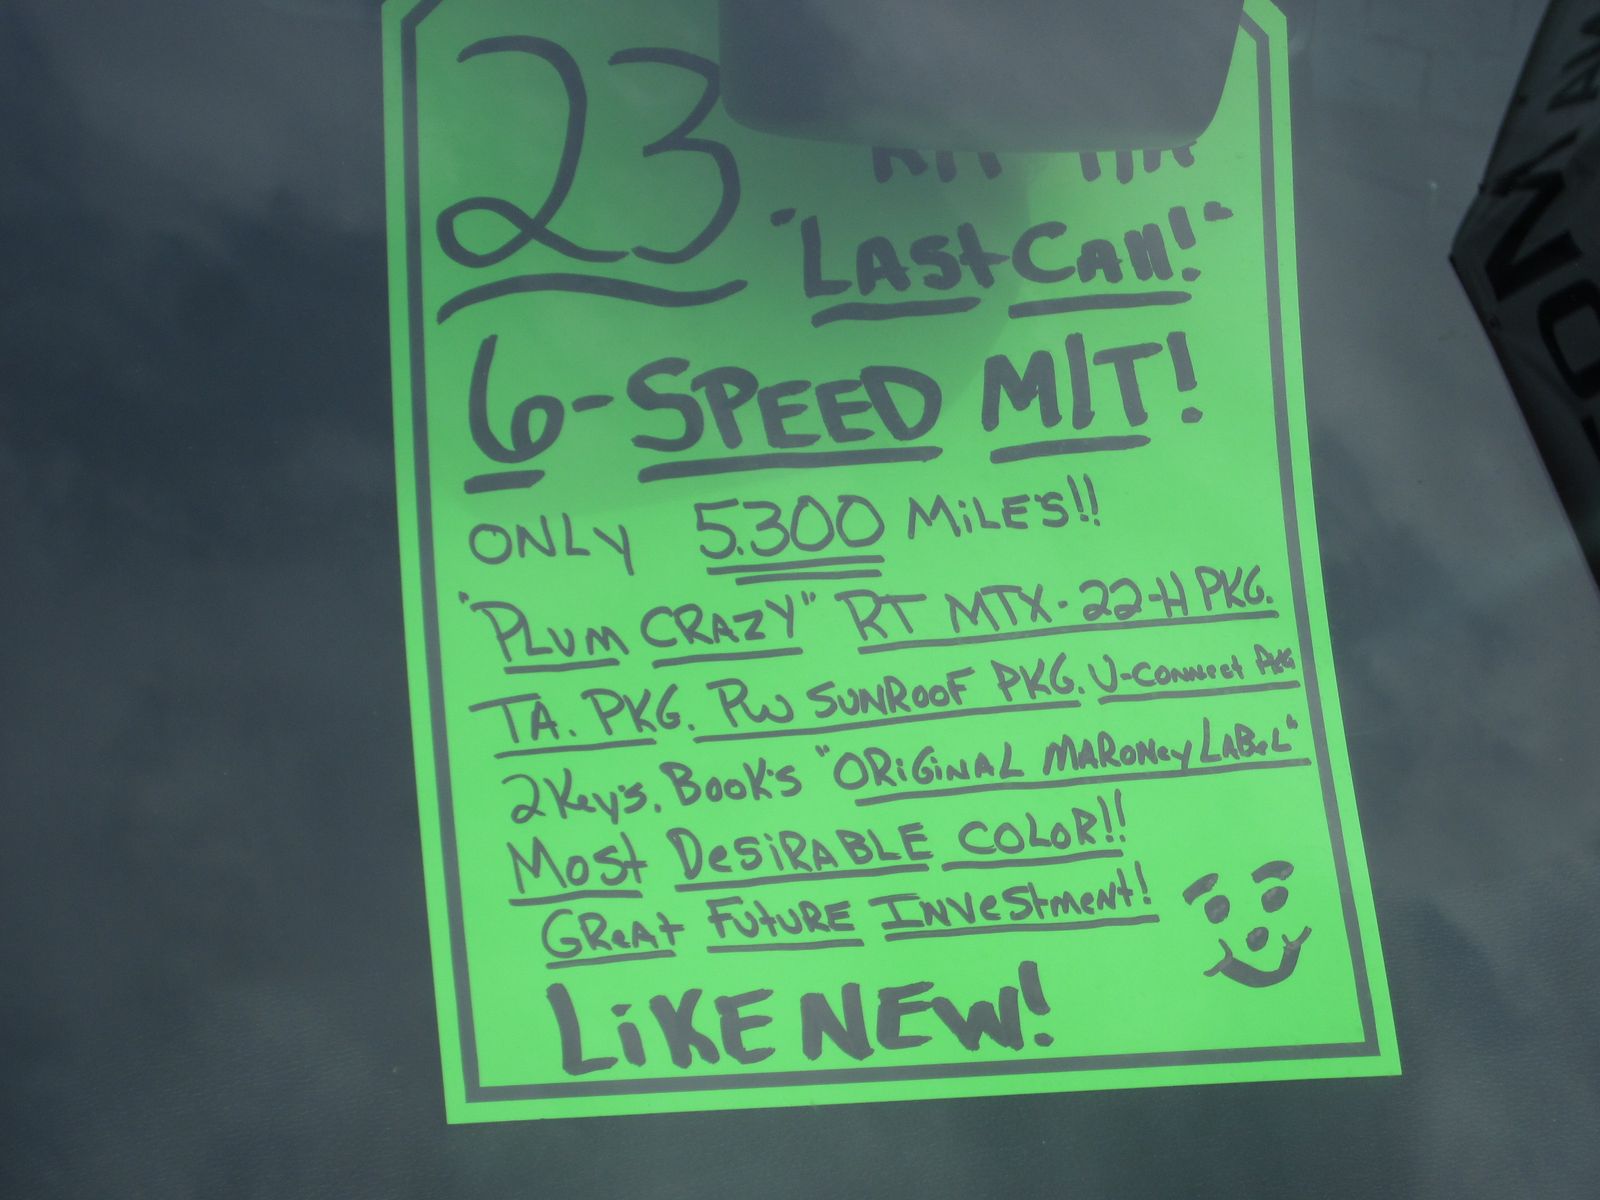 23
"LAST CALL!"
6-SPEED M/T!
ONLY 5,300 MILE'S!!
"PLUM CRAZY" RT MTX-22-H PKG.
TA. PKG. PW SUNROOF PKG. U-CONNECT PKG
2 KEY'S, BOOK'S "ORIGINAL MARONEY LABEL"
MOST DESIRABLE COLOR!!
GREAT FUTURE INVESTMENT!
LIKE NEW!